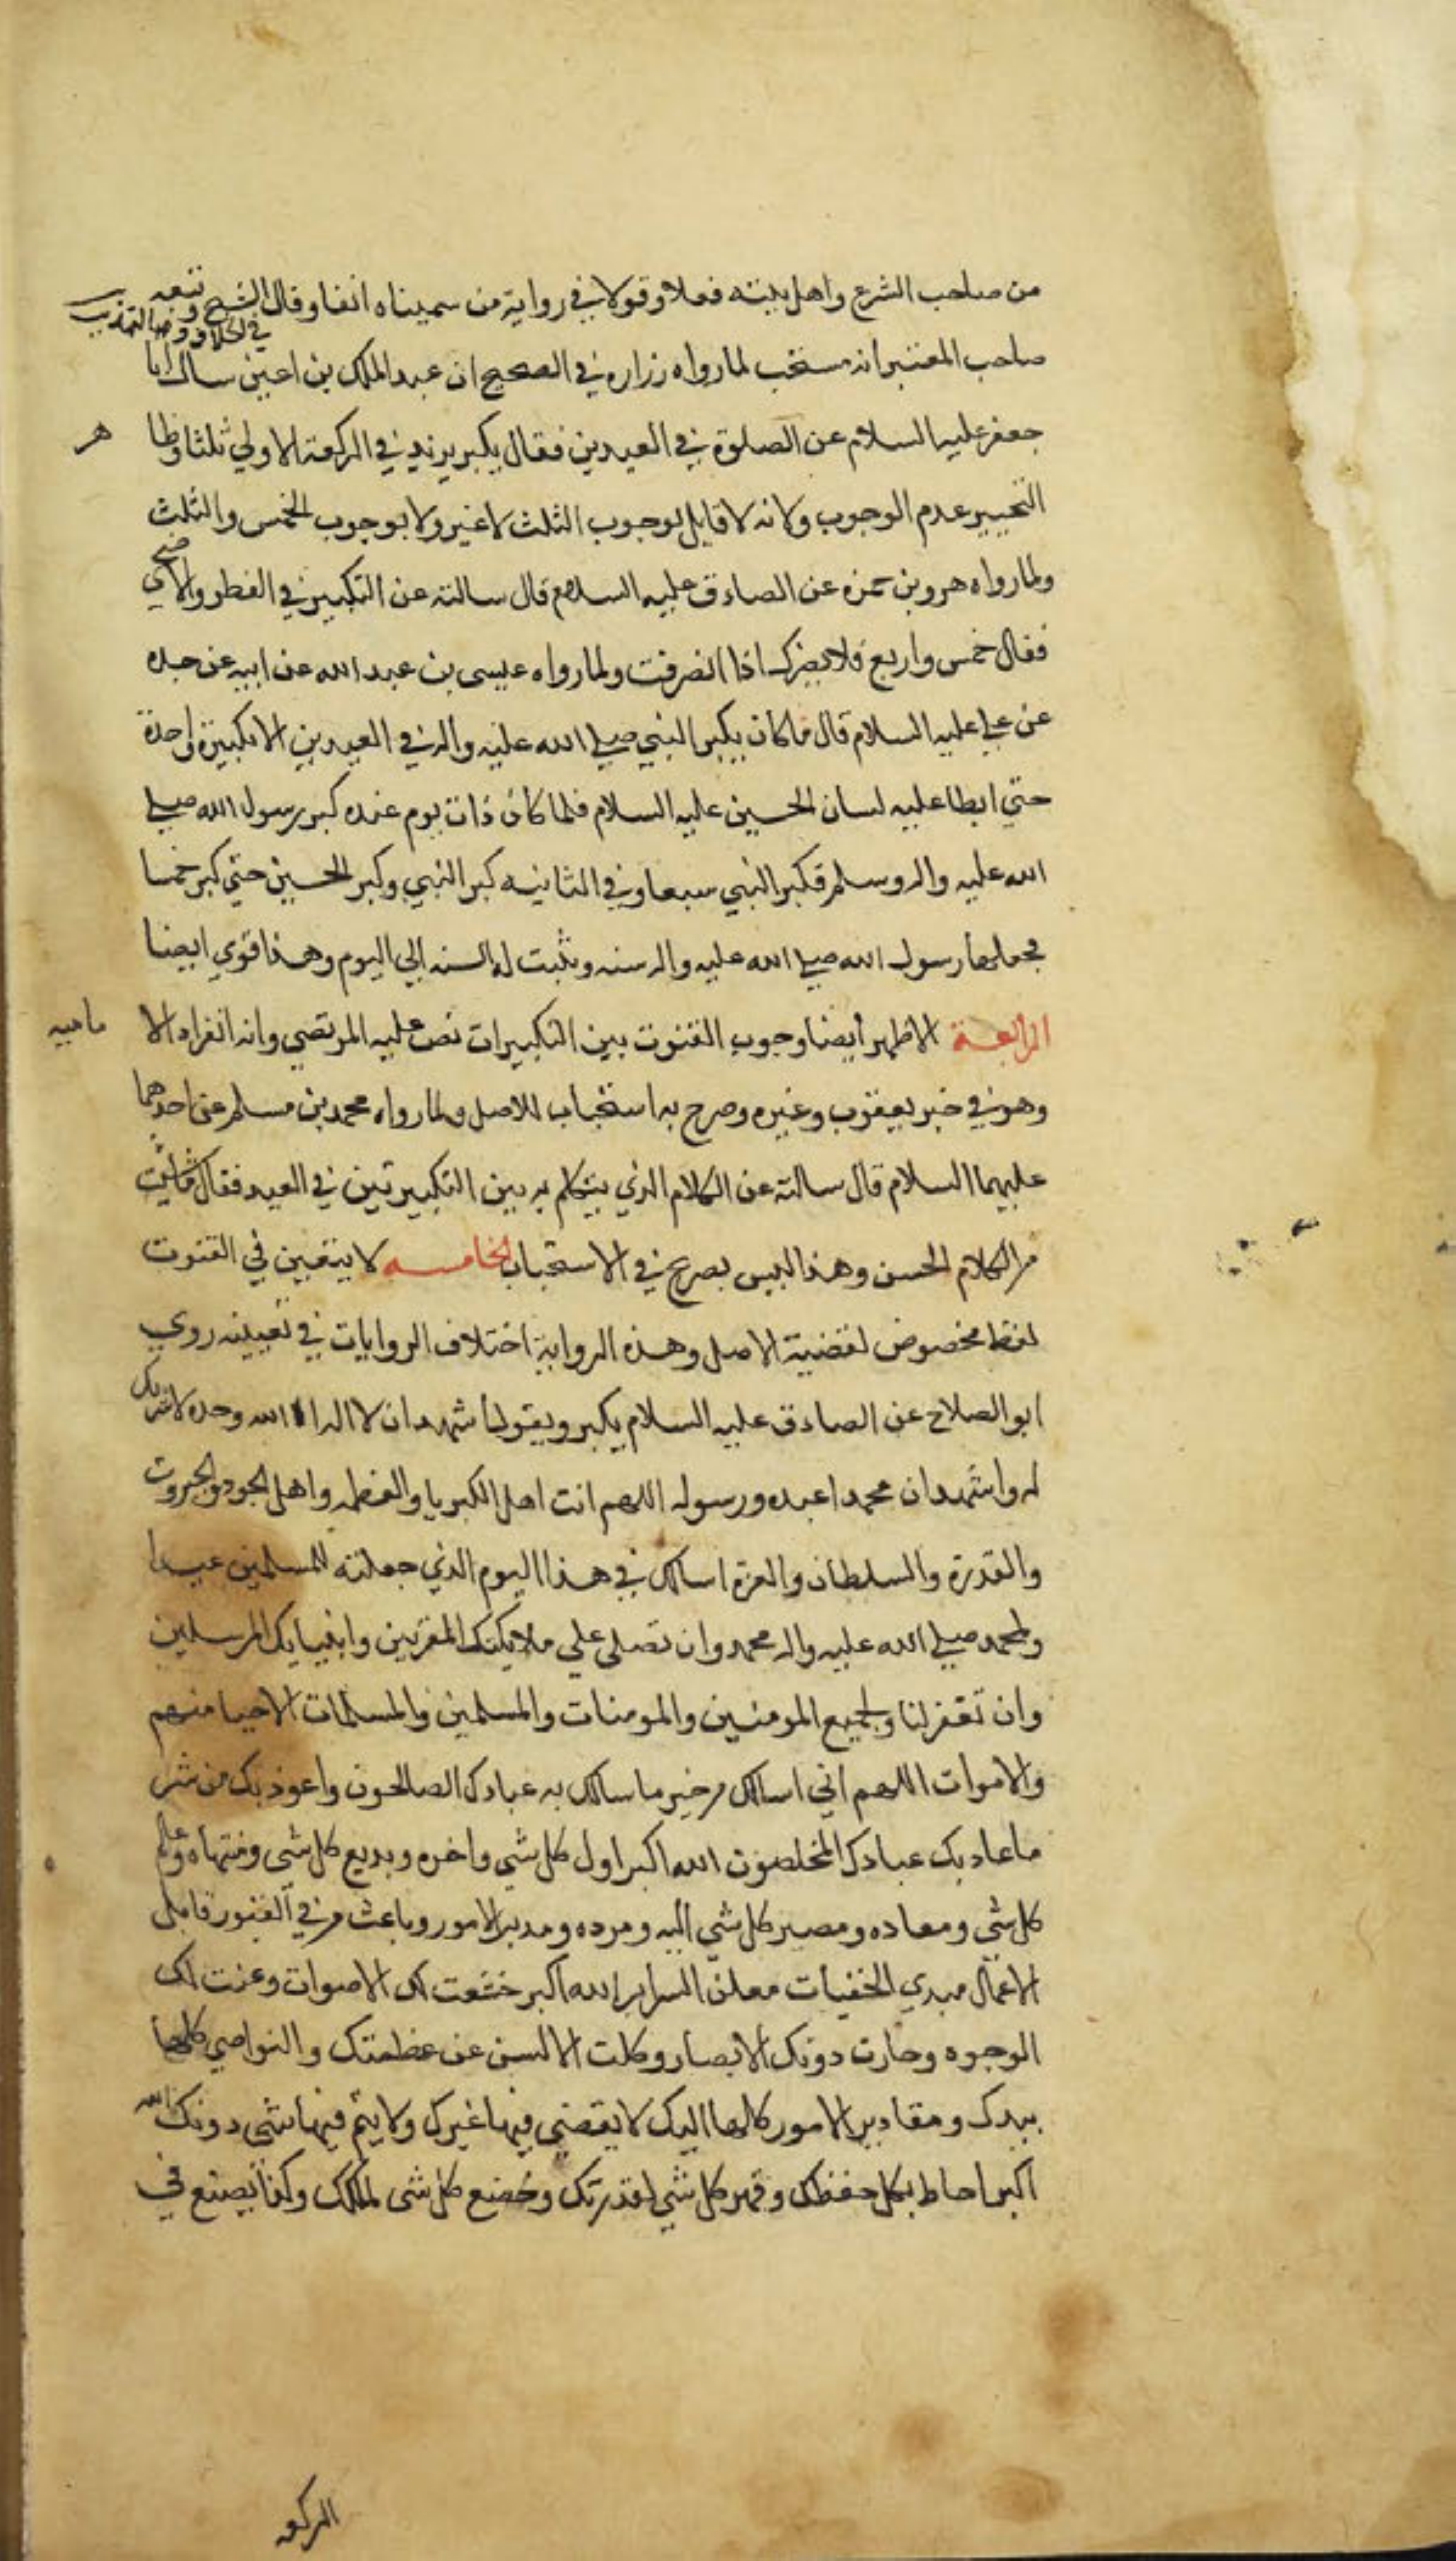 من صاحب الشرع واهل بيته فعلا وقولا في رواية من سميناه انفا وقال الشيخ وتبعه
في الخلاف و التهذيب
صاحب المعتبر انه مستحب لما رواه زراره في الصحيح ان عبد الملك بن اعين سال ابا
جعفر عليه السلام عن الصلوة في العيدين فقال يكبر يزيد في الركعة الاولي ثلثا وظا
هر
التخيير عدم الوجوب ولانه لا قايل بوجوب الثلث لا غير ولا بوجوب الخمس والثلث
ولما رواه هرون بن حمزه عن الصادق عليه السلام قال سالته عن التكبير في الفطر والاضحي
فقال خمس واربع فلا يضرك اذا انصرفت ولما رواه عيسى بن عبد الله عن ابيه عن جده
عن علي عليه السلام قال ما كان يكبر النبي صلي الله عليه واله في العيدين الا تكبيرة واحدة
حتي ابطا عليه لسان الحسين عليه السلام فلما كان ذات يوم عنده كبر رسول الله صلي
الله عليه واله وسلم فكبر النبي سبعا وفي الثانيه كبر النبي وكبر الحسين حتي كبر خمسا
فجعلها رسول الله صلي الله عليه واله سنه وثبت له السنه الي اليوم وهذا قوي ايضا
الرابعة الاظهر ايضا وجوب القنوت بين التكبيرات نص عليه المرتضي وانه انفراد الا
ماميه
وهو في خبر يعقوب وغيره وصرح به استحباب للاصل ولما رواه محمد بن مسلم عن احدهما
عليهما السلام قال سالته عن الكلام الذي يتكلم به بين التكبيرتين في العيد فقال ما شئت
من الكلام الحسن وهذا ليس بصريح في الاستحباب الخامسه لا يتعين في القنوت
لفظ مخصوص لقضية الاصل وهذه الرواية اختلاف الروايات في تعيينه روي
ابو الصلاح عن الصادق عليه السلام يكبر ويقول اشهد ان لا اله الا الله وحده لا شريك
له واشهد ان محمدا عبده ورسوله اللهم انت اهل الكبريا والعظمه واهل الجود والجبروت
والقدرة والسلطان والعزة اسالك في هذا اليوم الذي جعلته للمسلمين عيدا
ولمحمد صلي الله عليه واله محمد وان تصلي علي ملايكتك المقربين وانبيايك المرسلين
وان تغفر لنا ولجميع المومنين والمومنات والمسلمين والمسلمات الاحيا منهم
والاموات اللهم اني اسالك من خير ما سالك به عبادك الصالحون واعوذ بك من شر
ما عاد بك عبادك المخلصون الله اكبر اول كل شي واخره وبديع كل شي ومنتهاه وعالم
كل شي ومعاده ومصير كل شي اليه ومرده ومدبر الامور وباعث من في القبور قابل
الاعمال مبدي الخفيات معلن السراير الله اكبر خشعت لك الاصوات وعنت لك
الوجوه وحارت دونك الابصار وكلت الالسن عن عظمتك والنواصي كلها
بيدك ومقادير الامور كلها اليك لا يقضي فيها غيرك ولا يتم فيها شي دونك الله
اكبر احاط بكل حفظك وقهر كل شي لقدرتك وخضع كل شي لملكك وكذا يصنع في
الركعه